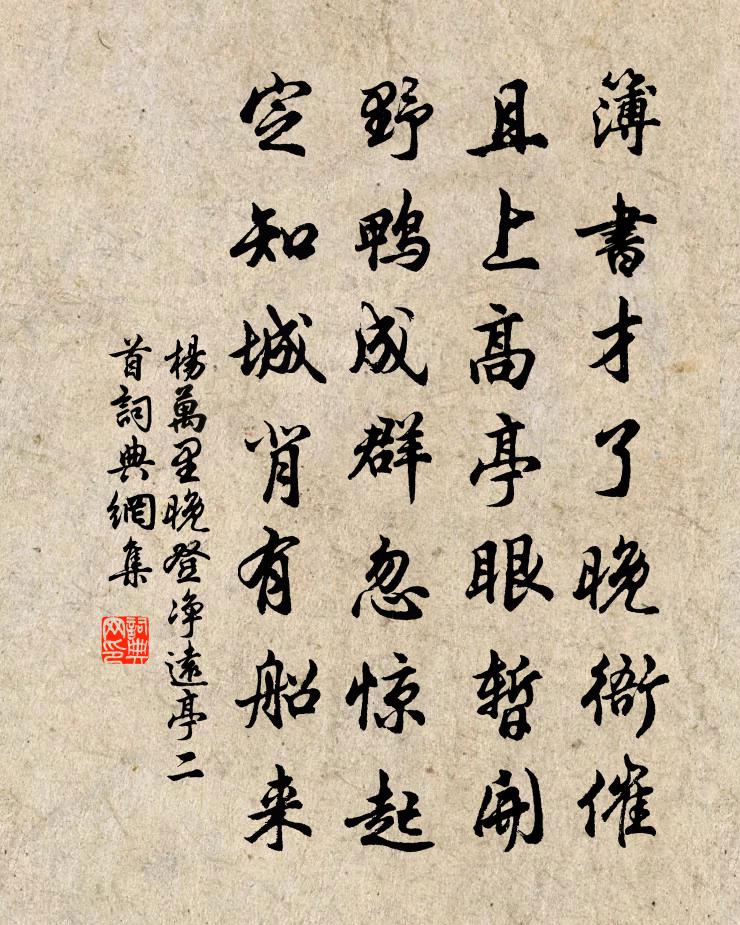 簿書才了晚衙催
且上高亭眼暫開
野鴨成群忽惊起
定知城背有船来
楊萬里晚登净遠亭二
首詞典網集
詞典
网印